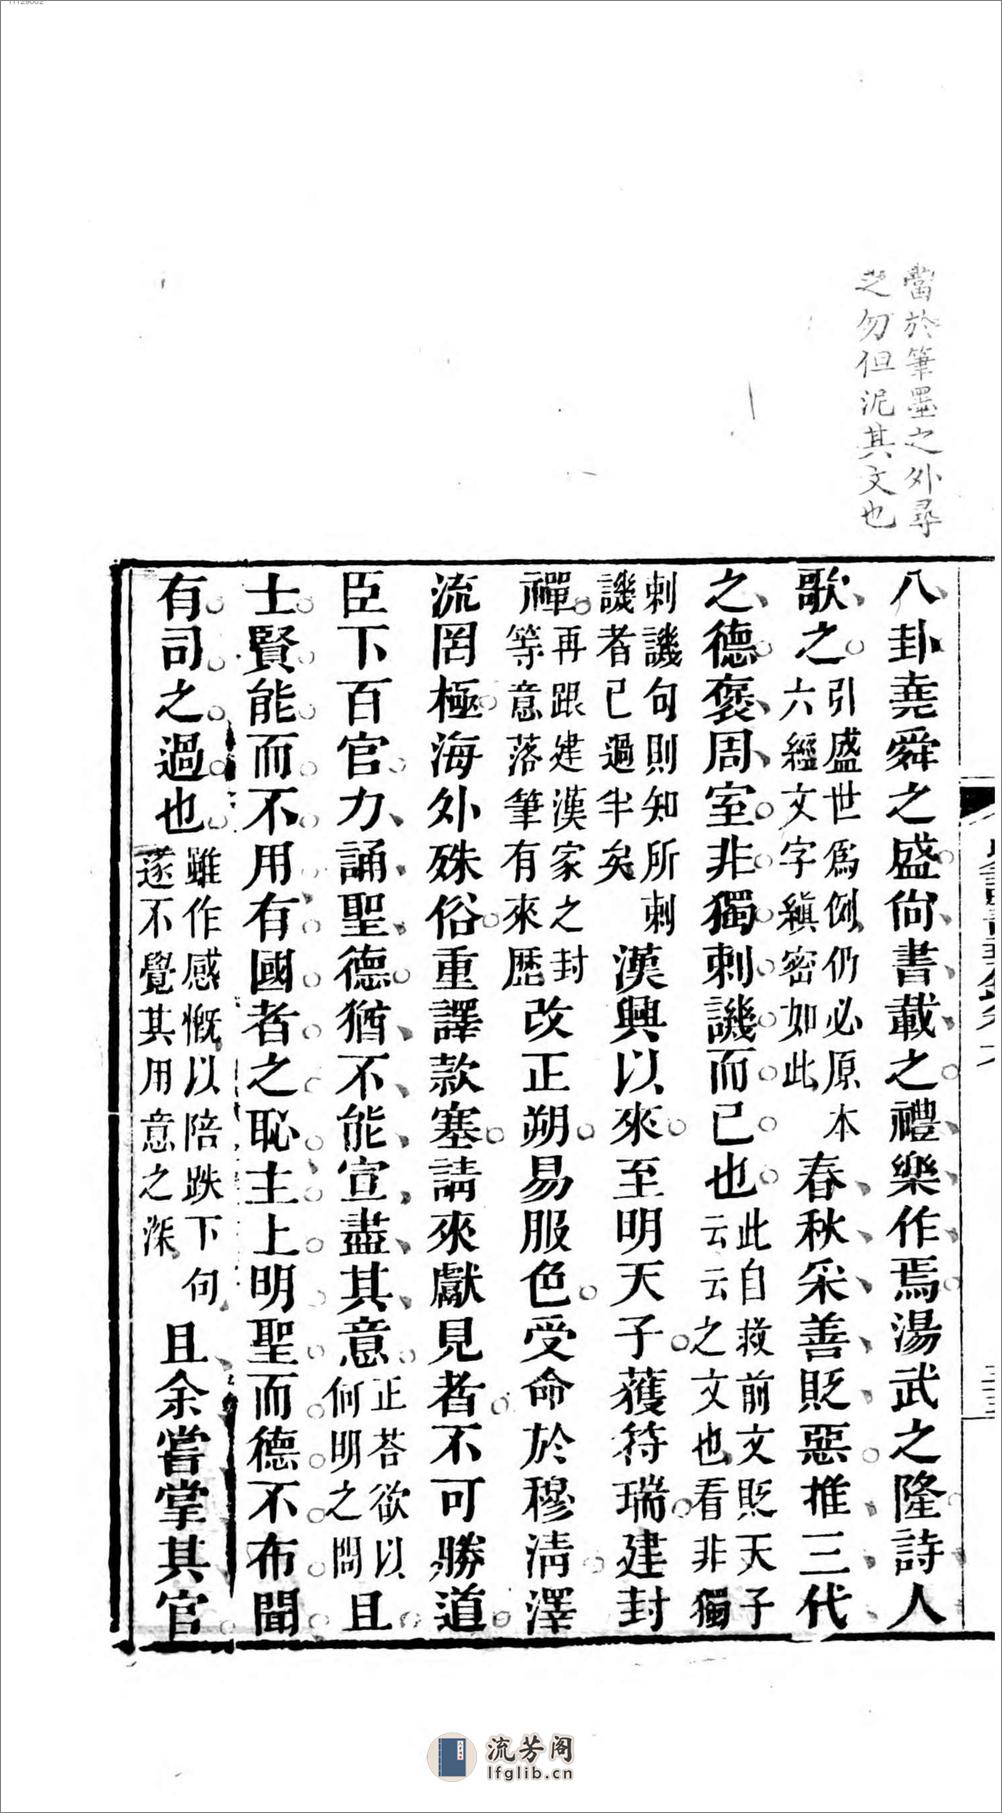 當於筆墨之外尋
之勿但泥其文也
八卦堯舜之盛尙書載之禮樂作焉湯武之隆詩人
歌之引盛世爲例仍必原本六經文字縝密如此春秋采善貶惡推三代
之德褒周室非獨刺譏而已也此自救前文貶天子云云之文也看非獨
刺譏句則知所刺譏者已過半矣漢興以來至明天子獲符瑞建封
禪再跟建漢家之封等意落筆有來歷改正朔易服色受命於穆淸澤
流罔極海外殊俗重譯款塞請來獻見者不可勝道
臣下百官力誦聖德猶不能宣盡其意正荅欲以何明之問且
士賢能而不用有國者之恥主上明聖而德不布聞
有司之過也雖作感慨以陪跌下句遂不覺其用意之深且余嘗掌其官
流芳阁
lfglib.cn